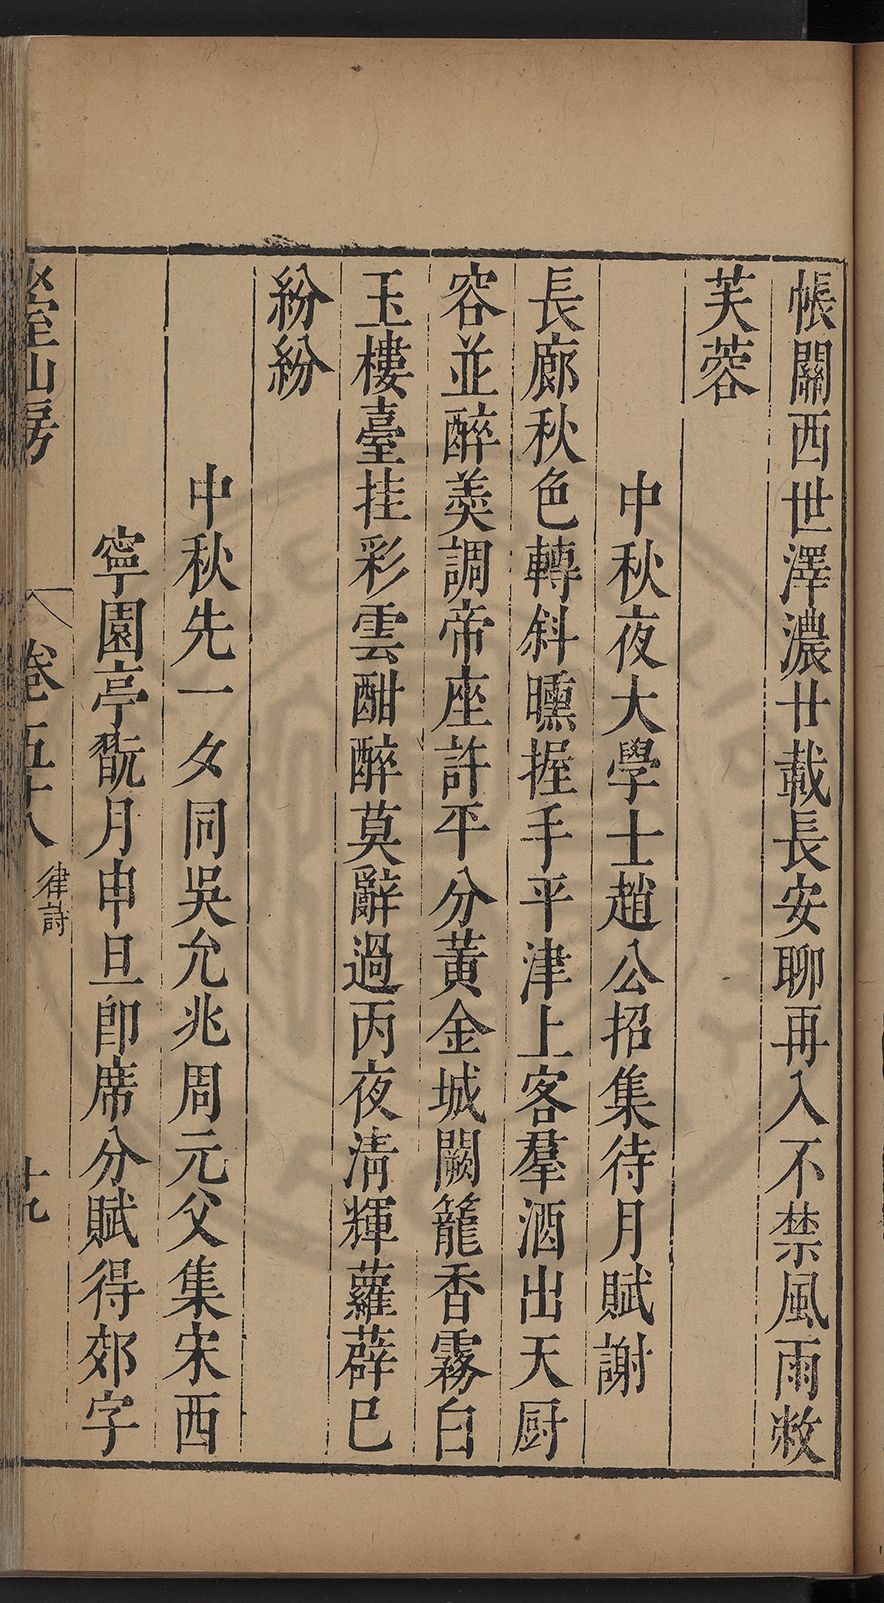 帳關西世澤濃廿載長安聊再入不禁風雨敝
芙蓉
中秋夜大學士趙公招集待月賦謝
長廊秋色轉斜曛握手平津上客羣酒出天厨
容並醉羮調帝座許平分黃金城闕籠香霧白
玉樓臺挂彩雲酣醉莫辭過丙夜清輝蘿薜巳
紛紛
中秋先一夕同吳允兆周元父集宋西
寧園亭翫月申旦卽席分賦得郊字
室山房
卷五十八
律詩
十九